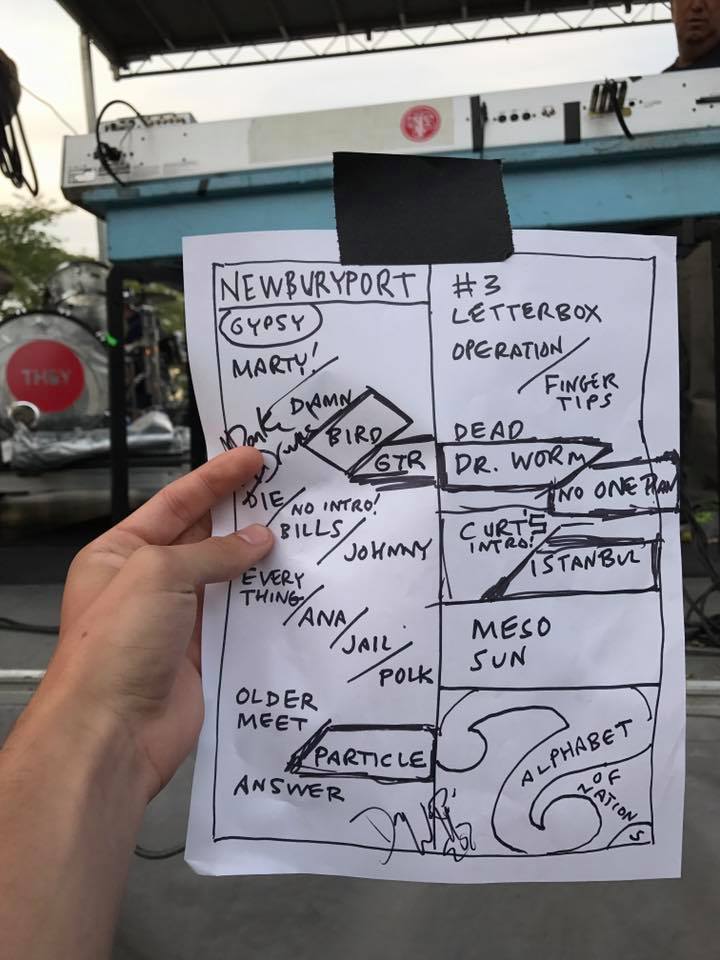 NEWBURYPORT
GYPSY
MARTY!
DAMN
BIRD
GTR
DIE
NO INTRO!
BILLS
JOHNNY
EVERY
THING
ANA
JAIL
POLK
OLDER
MEET
PARTICLE
ANSWER
#3
LETTERBOX
OPERATION
FINGER
TIPS
DEAD
DR. WORM
NO ONE
CURT'S
INTRO!
ISTANBUL
MESO
SUN
ALPHABET
OF
NATION
S